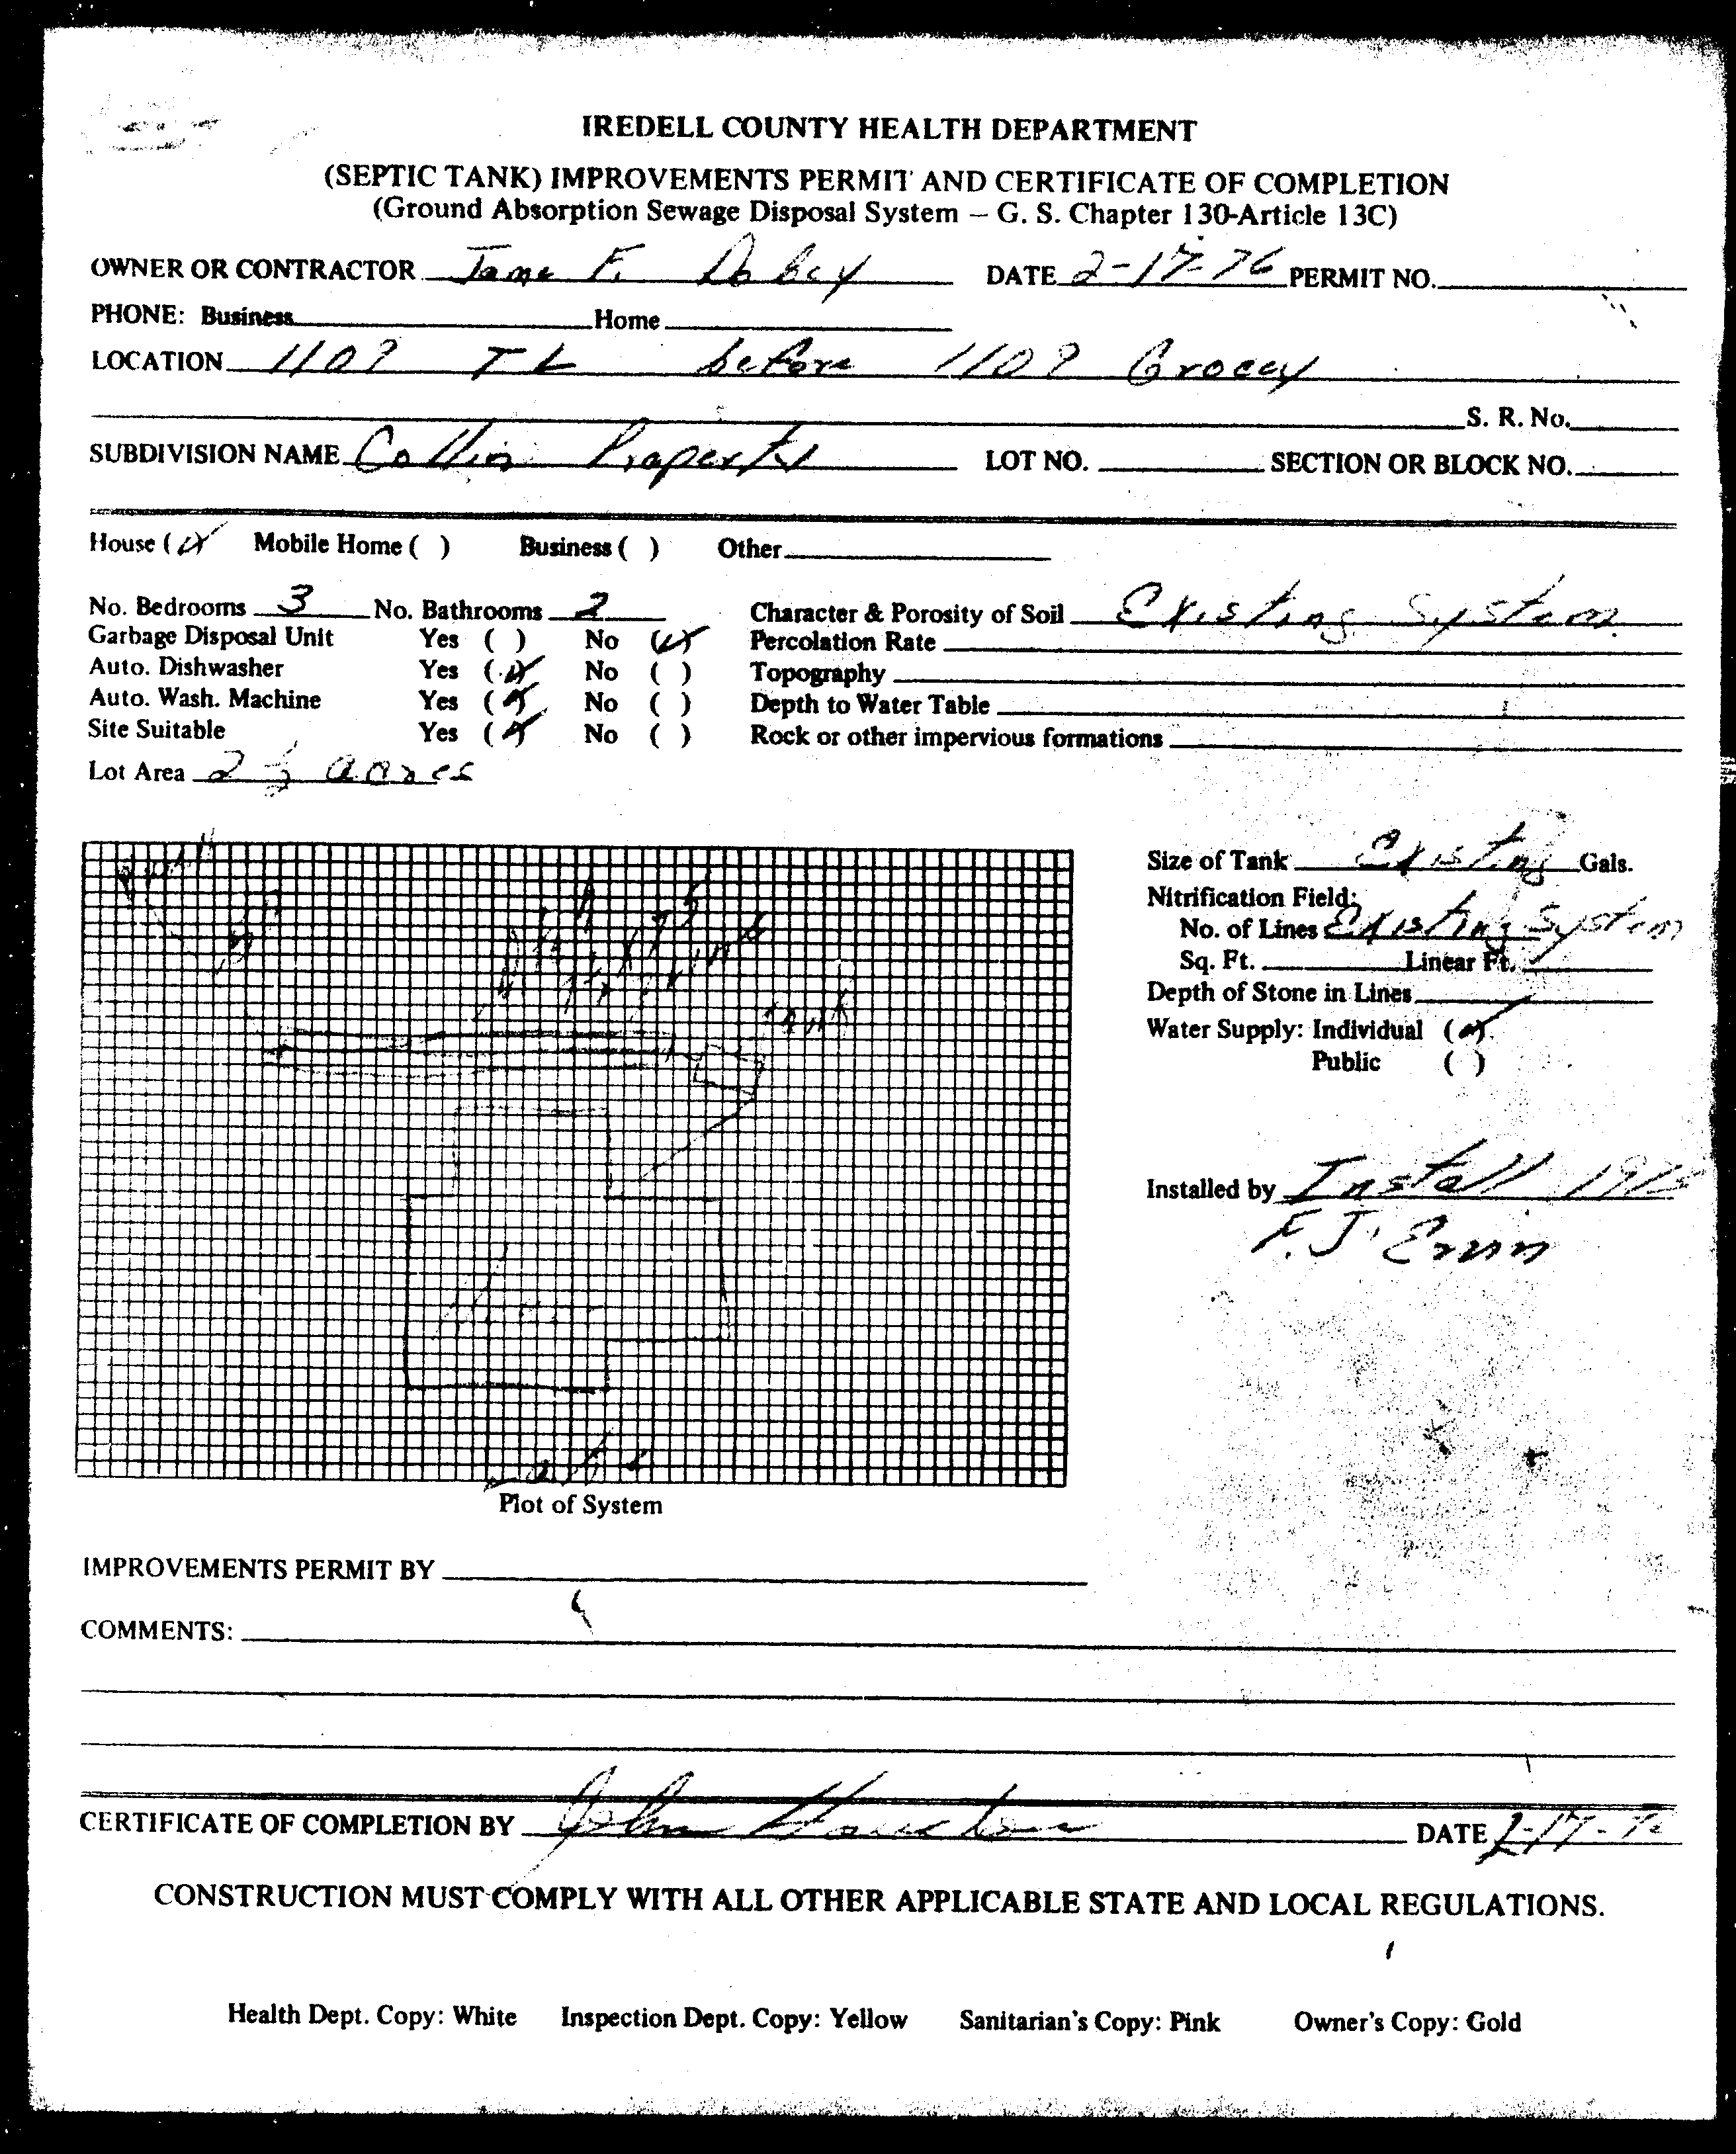 IREDELL COUNTY HEALTH DEPARTMENT
(SEPTIC TANK) IMPROVEMENTS PERMIT AND CERTIFICATE OF COMPLETION
(Ground Absorption Sewage Disposal System – G. S. Chapter 130-Article 13C)
OWNER OR CONTRACTOR Jane F. DATE 2-17-76 PERMIT NO.
PHONE: Business Home
LOCATION 1109 T L before 1109 Grocey
S. R. No.
SUBDIVISION NAME Collin Property LOT NO. SECTION OR BLOCK NO.
House (✓) Mobile Home ( ) Business ( ) Other
No. Bedrooms 3 No. Bathrooms 2 Character & Porosity of Soil Existing System
Garbage Disposal Unit Yes ( ) No (✓) Percolation Rate
Auto. Dishwasher Yes (✓) No ( ) Topography
Auto. Wash. Machine Yes (✓) No ( ) Depth to Water Table
Site Suitable Yes (✓) No ( ) Rock or other impervious formations
Lot Area 2 ½ acres
Size of Tank Existing Gals.
Nitrification Field:
No. of Lines Existing System
Sq. Ft. Linear Ft.
Depth of Stone in Lines
Water Supply: Individual (✓)
Public ( )
tank
Installed by Install
F. J. Ervin
Plot of System
IMPROVEMENTS PERMIT BY
COMMENTS:
CERTIFICATE OF COMPLETION BY John Houston DATE 2-17-76
CONSTRUCTION MUST COMPLY WITH ALL OTHER APPLICABLE STATE AND LOCAL REGULATIONS.
Health Dept. Copy: White Inspection Dept. Copy: Yellow Sanitarian's Copy: Pink Owner's Copy: Gold